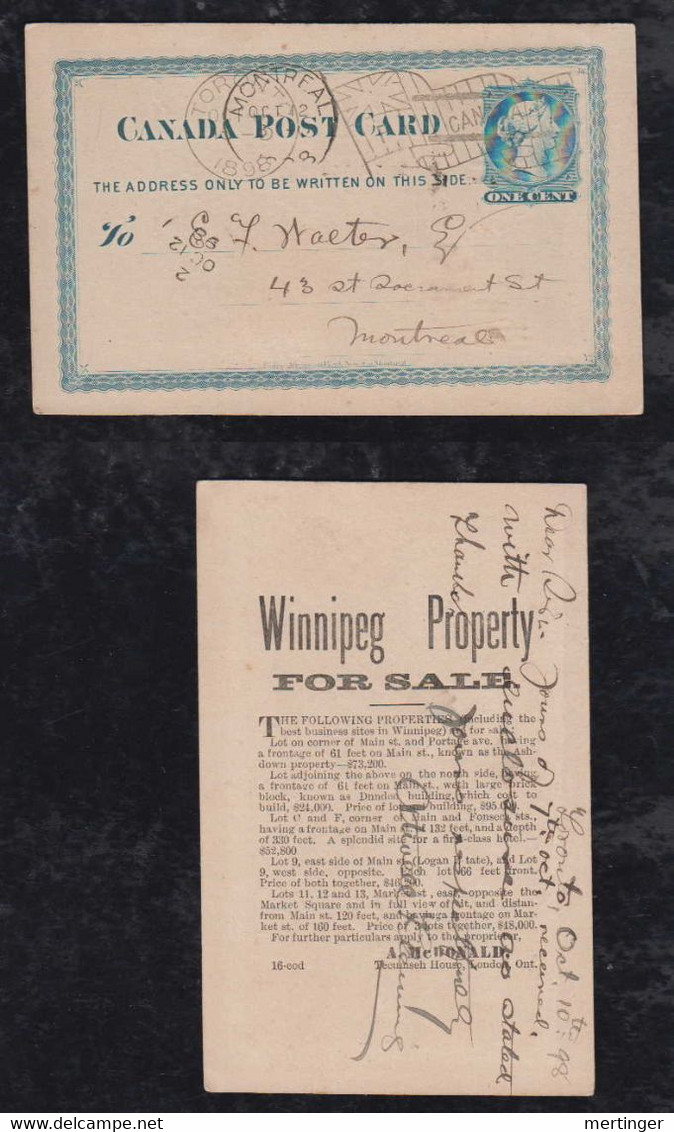 TORONTO
MONTREAL
OCT 12
1898
CANADA POST CARD
CAN
ONE CENT
THE ADDRESS ONLY TO BE WRITTEN ON THIS SIDE.
To E. F. Walter, Esq
2
OC 12
98
43 St Sacrament St
Montreal
Winnipeg Property
FOR SALE
THE FOLLOWING PROPERTIES (including the
best business sites in Winnipeg) are for sale:
Lot on corner of Main st. and Portage ave. having
a frontage of 61 feet on Main st., known as the Ash-
down property—$73,200.
Lot adjoining the above on the north side, having
a frontage of 61 feet on Main st., with large brick
block, known as Dundee building, which cost to
build, $24,000. Price of lot and building, $95,000.
Lot C and F, corner of Main and Fonseca sts.,
having a frontage on Main of 132 feet, and a depth
of 330 feet. A splendid site for a first-class hotel.—
$52,800
Lot 9, east side of Main st. (Logan Estate), and Lot
9, west side, opposite. Each lot 66 feet front.
Price of both together,
Lots 11, 12 and 13, Market st., east, opposite the
Market Square and in full view of it, and distan-
from Main st. 120 feet, and having a frontage on Mar-
ket st. of 160 feet. Price of 3 lots together, $18,000.
For further particulars apply to the proprietor,
A. McDONALD,
16-eod Tecumseh House, London, Ont.
Toronto Oct. 10th 98
Dear Sir:- Yours of 7th Oct. received,
with as stated
Thanks
Yours respectfully
mertinger